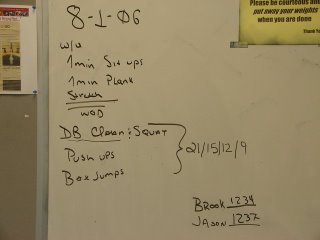 Please be courteous and
put away your weights
when you are done
Thank Yo
8-1-06
w/u
1min Sit ups
1min Plank
Stretch
WOD
DB Clean & Squat
Push ups
Box Jumps
21/15/12/9
Brook 1234
Jason 1237